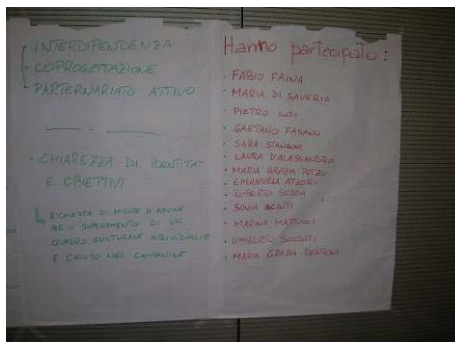 INTERDIPENDENZA
COPROGETTAZIONE
PARTERNARIATO ATTIVO
• CHIAREZZA DI IDENTITA'
E OBIETTIVI
RICHIESTA DI MISURE D'AZIONE
PER IL SUPERAMENTO DI UN
QUADRO CULTURALE INDIVIDUALE
E CHIUSO NEL CAMPANILE
Hanno partecipato:
• FABIO FAINA
• MARIA DI SAVERIO
• PIETRO LOI
• GAETANO FAGANO
• SARA
• LAURA D'ALESSANDRO
• MARIA GRAZIA
• EMANUELA ATZORI
• ROBERTO
• SONIA
• MARINA MATTUCCI
• UMBERTO
• MARIA GRAZIA